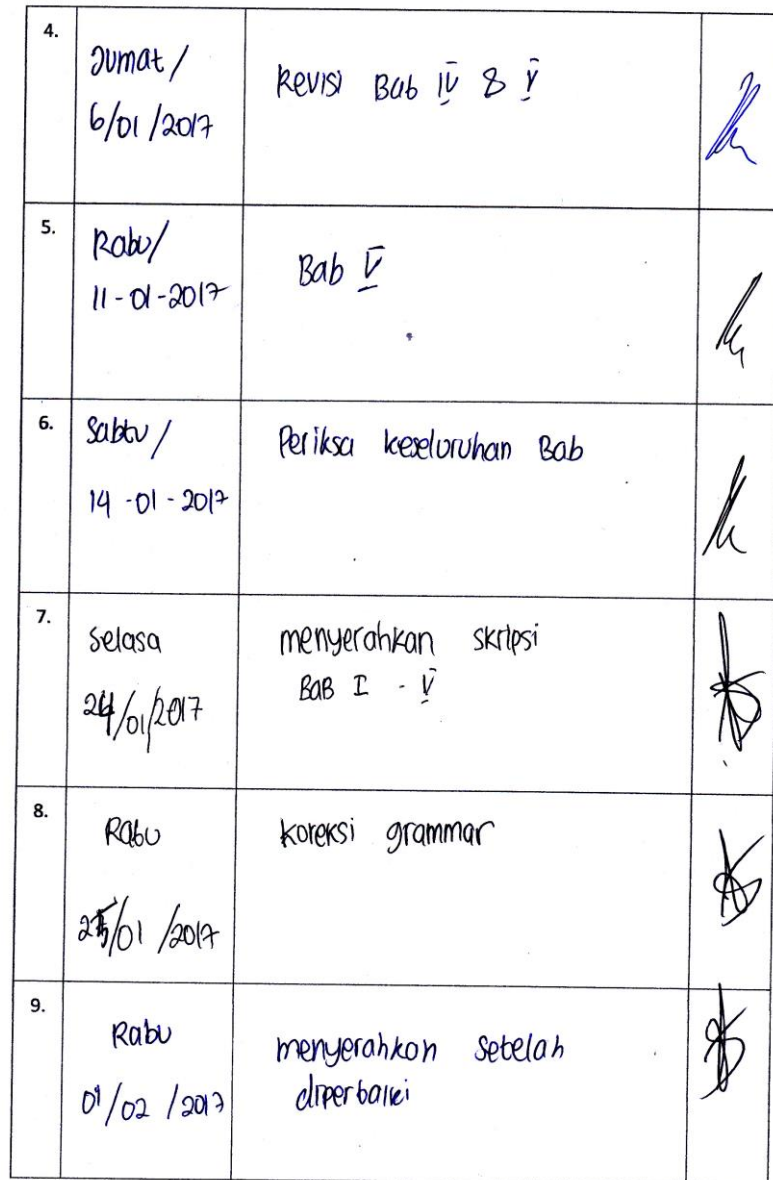 4.
Jumat /
6/01/2017
Revisi Bab IV & V
5.
Rabu/
11-01-2017
Bab V
6.
Sabtu /
14-01-2017
Periksa keseluruhan Bab
7.
Selasa
24/01/2017
menyerahkan skripsi
BAB I - V
8.
Rabu
25/01/2017
koreksi grammar
9.
Rabu
01/02/2017
menyerahkan setelah
diperbaiki